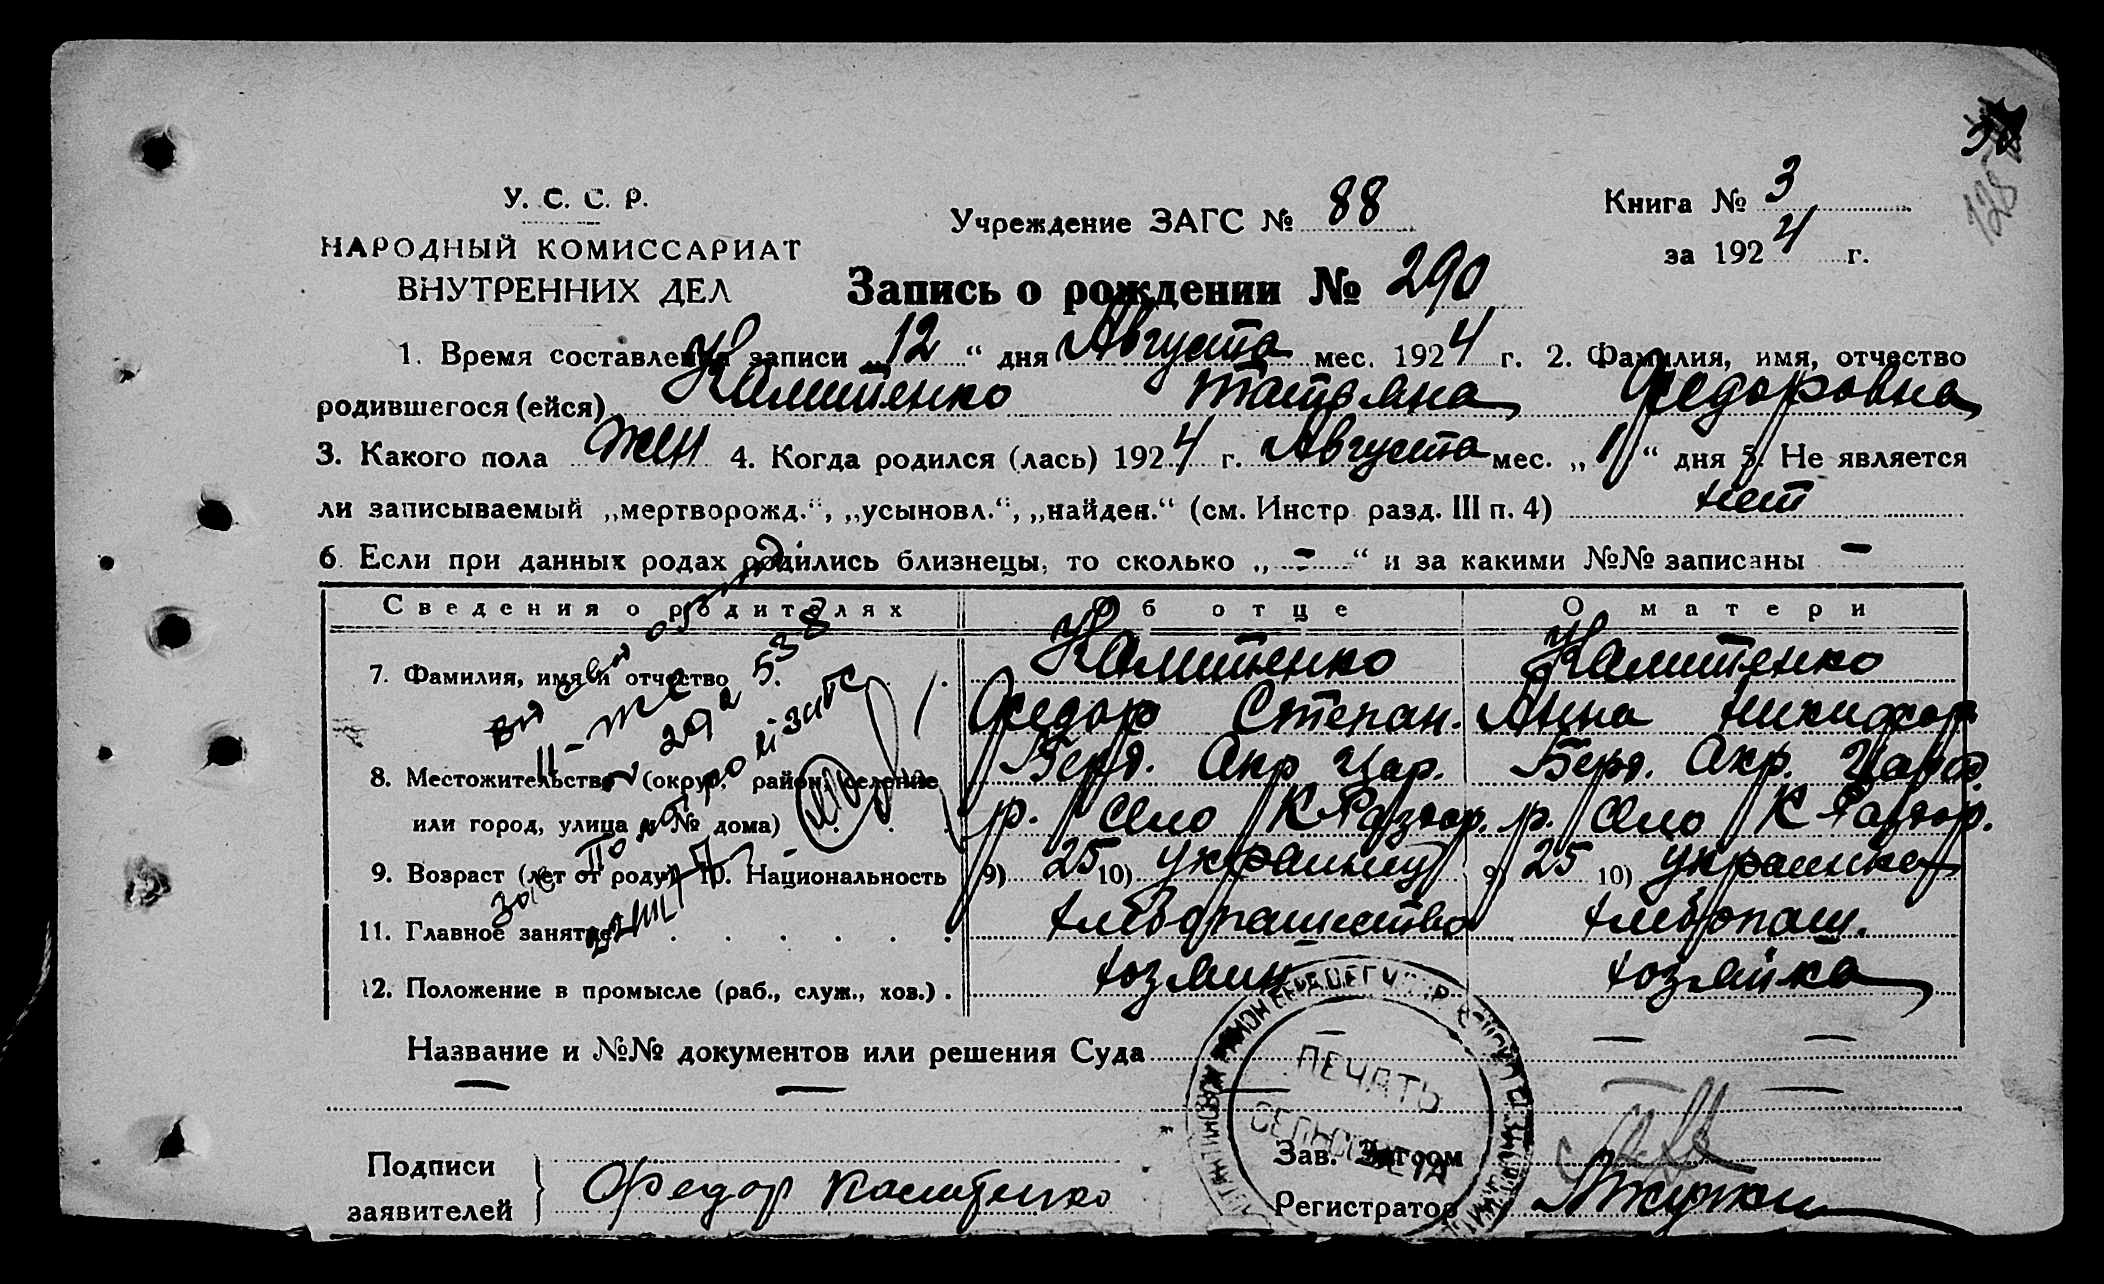 У. С. С. Р.
НАРОДНЫЙ КОМИССАРИАТ
ВНУТРЕННИХ ДЕЛ
Учреждение ЗАГС № 88
Книга № 3
за 1924 г.
Запись о рождении № 290
1. Время составления записи „12“ дня Августа мес. 1924 г. 2. Фамилия, имя, отчество
родившегося (ейся) Татьяна Федоровна
3. Какого пола жен 4. Когда родился (лась) 1924 г. Августа мес. „1“ дня 5. Не является
ли записываемый „мертворожд.“, „усыновл.“, „найден.“ (см. Инстр разд. III п. 4) нет
6. Если при данных родах родились близнецы, то сколько „-“ и за какими №№ записаны -
Сведения о родителях Об отце О матери
7. Фамилия, имя и отчество
Федор Степан. Анна Никифор
8. Местожительство (округ, район, селение Берд. Окр Цар. Берд. Окр. Царев
или город, улица и № дома) р. село К Раздор. р. село К Раздор.
9. Возраст (лет от роду) 10. Национальность 9) 25 10) украинец 9) 25 10) украинка
11. Главное занятие хлебопашество хлебопаш.
12. Положение в промысле (раб., служ., хоз.) . хозяин хозяйка
Название и №№ документов или решения Суда — —
— — — —
ПЕЧАТЬ
СЕЛЬСОВЕТА
Подписи
заявителей Федор
Зав. Загсом
Регистратор